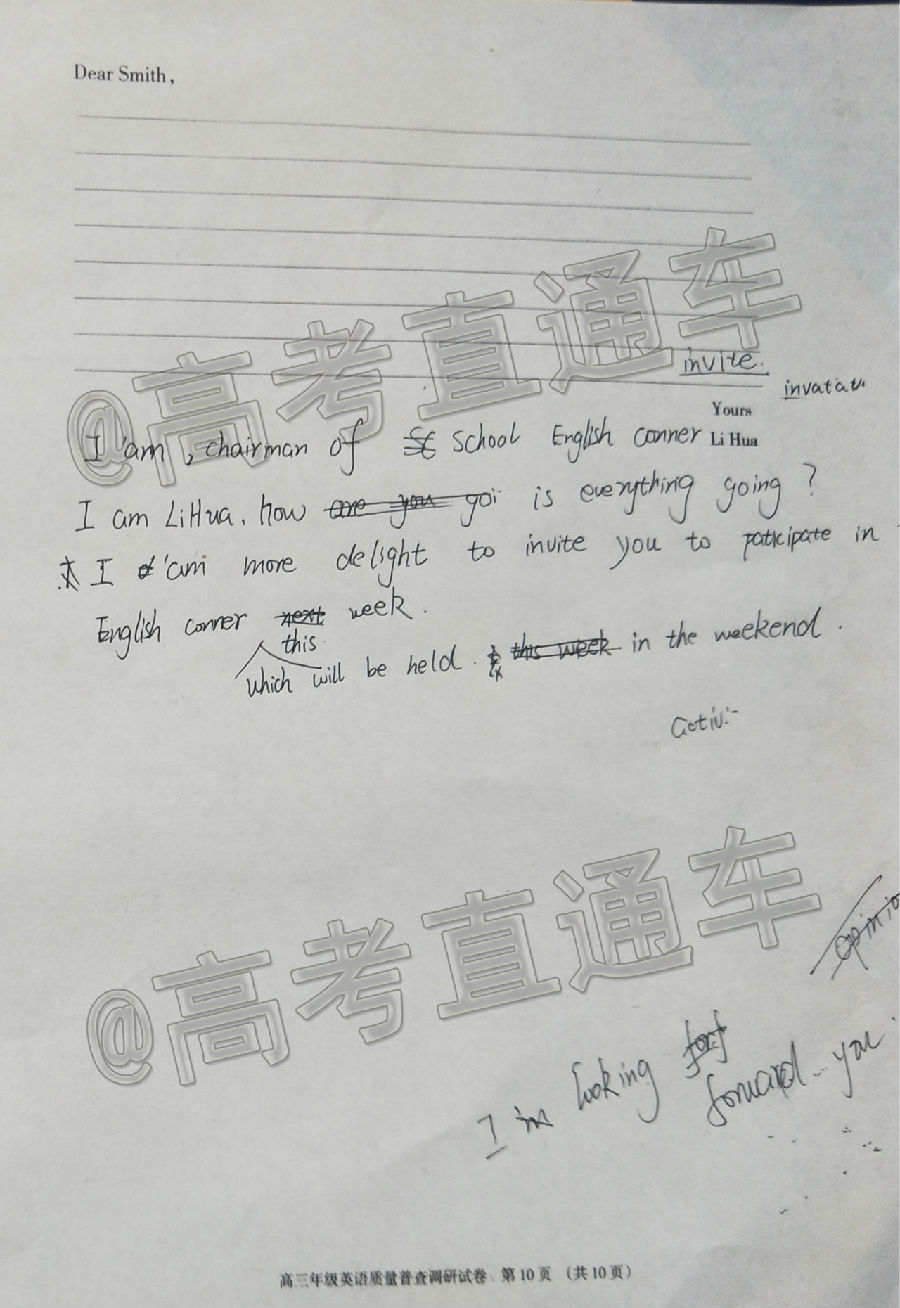 Dear Smith,
@高考直通车
invite.
Yours
Li Hua
I am, chairman of School English conner
I am LiHua, how is everything going?
I am more delight to invite you to paticipate in
English conner week.
this
which will be held in the weekend.
@高考直通车
opinio
I'm looking forward you
高三年级英语质量普查调研试卷 第10页 (共10页)